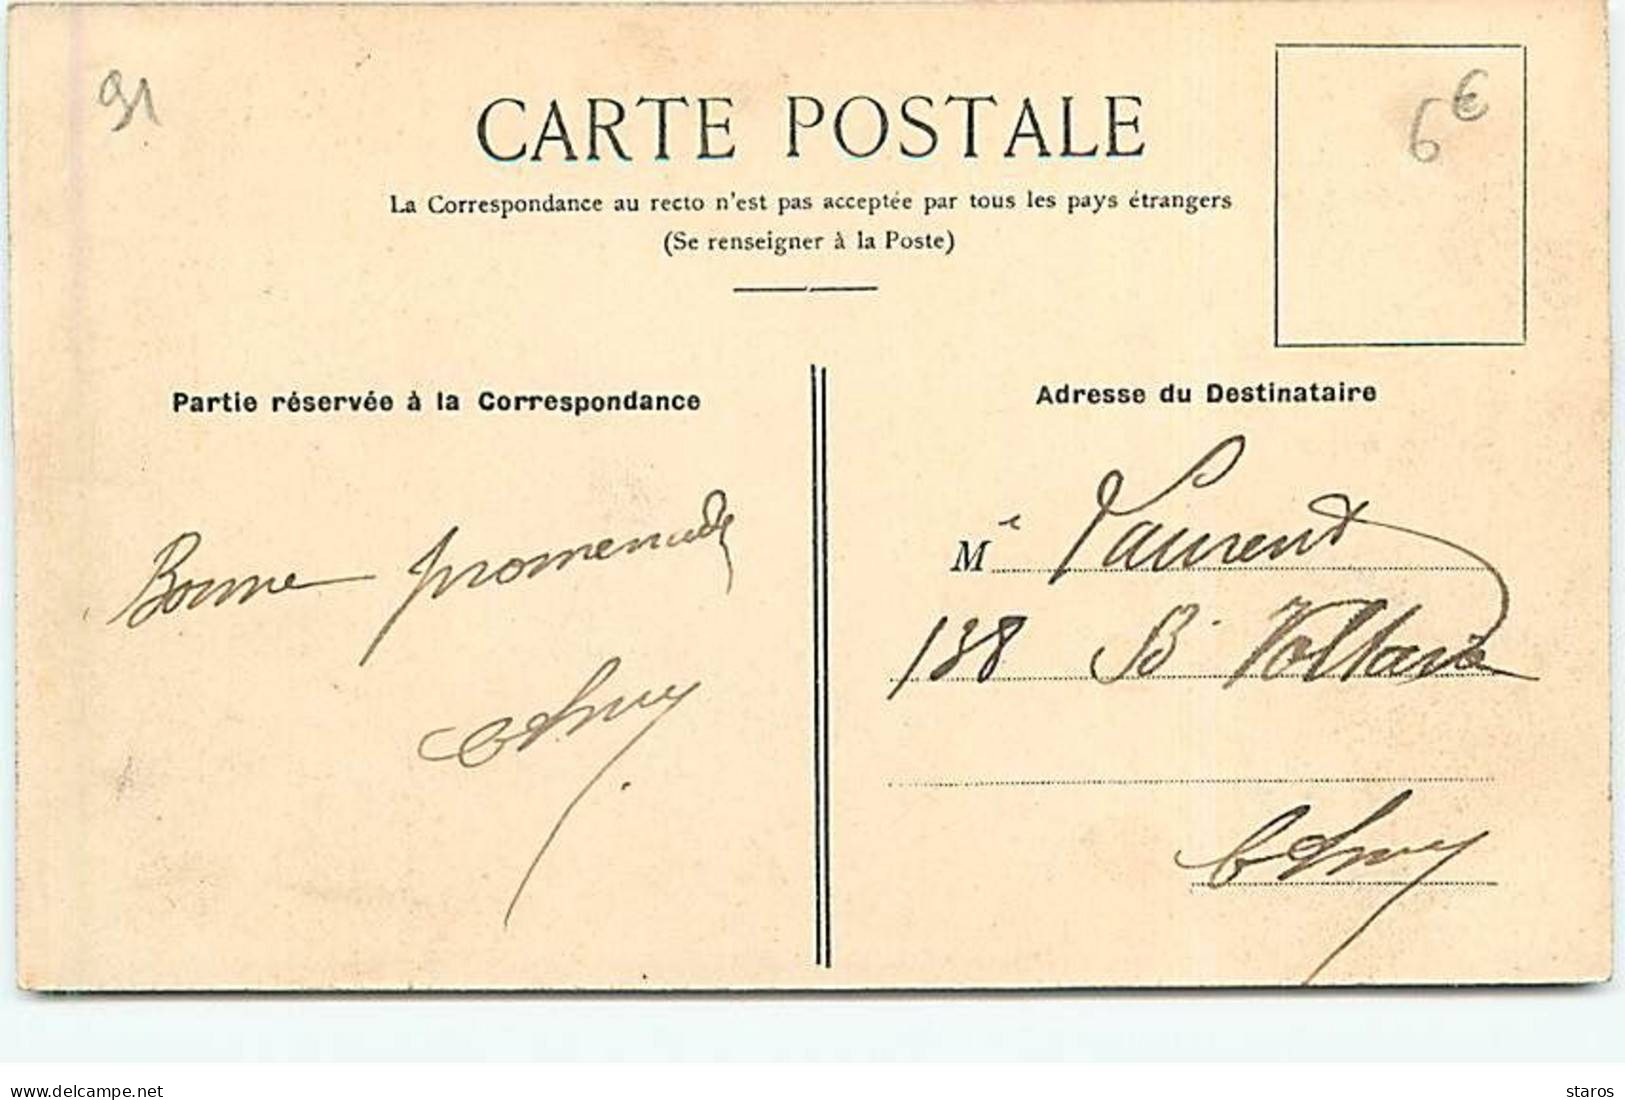 91
6€
CARTE POSTALE
La Correspondance au recto n'est pas acceptée par tous les pays étrangers
(Se renseigner à la Poste)
Partie réservée à la Correspondance
Adresse du Destinataire
Bonne promenade
Me Laurent
138 Bd Voltaire
Delcampe.net
staros